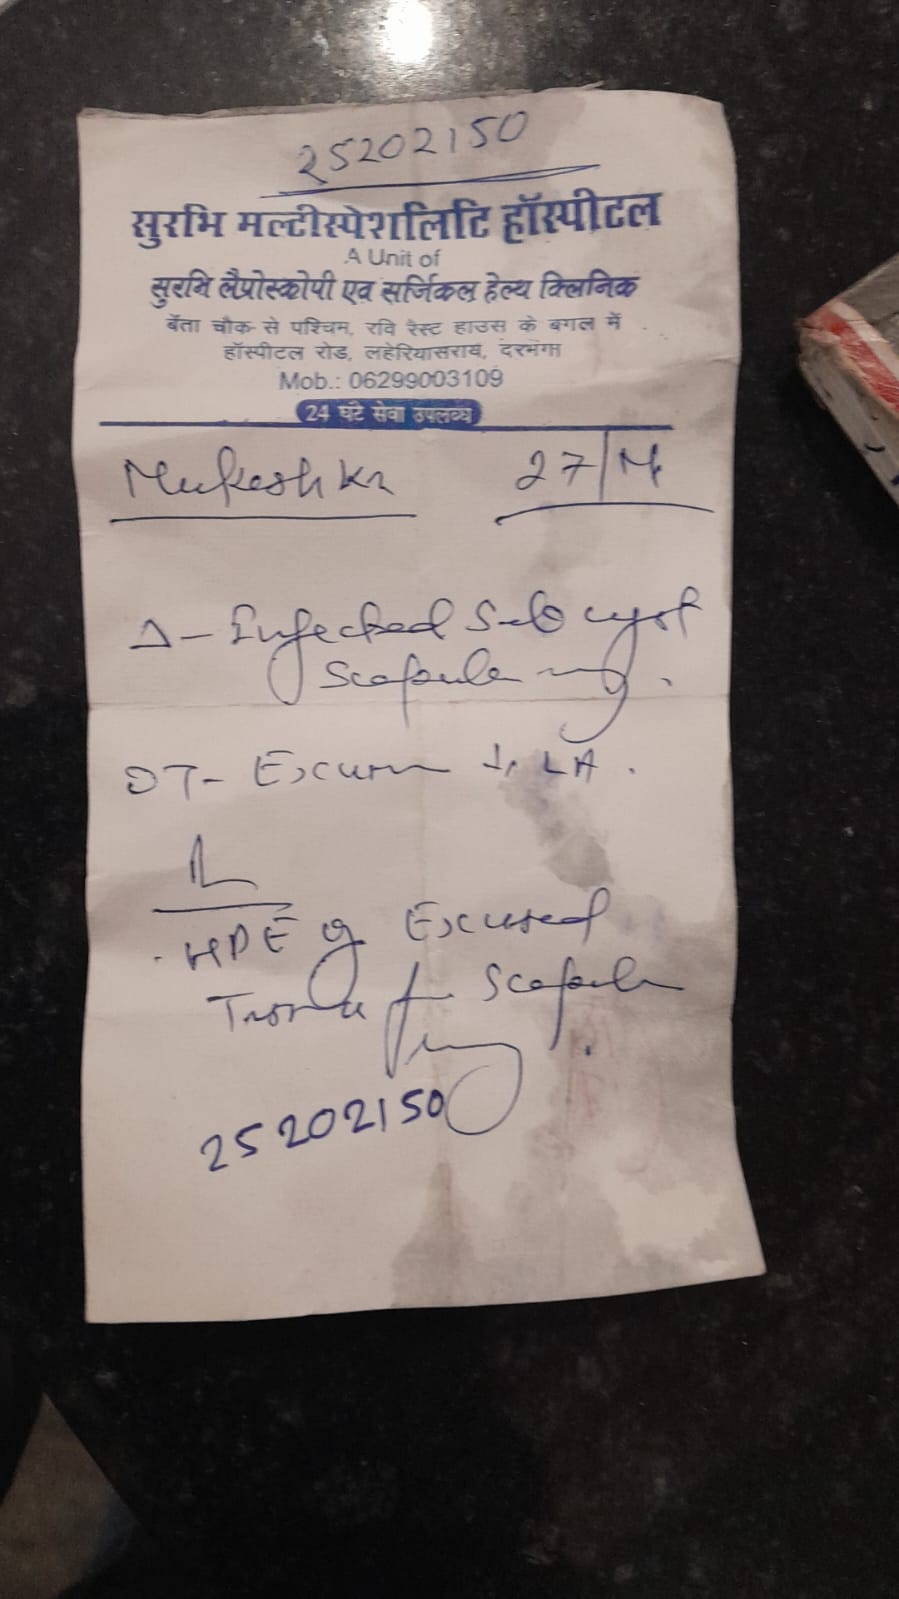 25202150
सुरभि मल्टीस्पेशलिटि हॉस्पीटल
A Unit of
सुरभि लैप्रोस्कोपी एव सर्जिकल हेल्थ क्लिनिक
बेंता चौक से पश्चिम, रवि रेस्ट हाउस के बगल में
हॉस्पीटल रोड, लहेरियासराय, दरभंगा
Mob.: 06299003109
24 घंटे सेवा उपलब्ध
Mukesh Kr 27/M
Δ- Infected Seb cyst
Scapular
OT- Excision LA.
HPE of Excised
Scapular
25202150